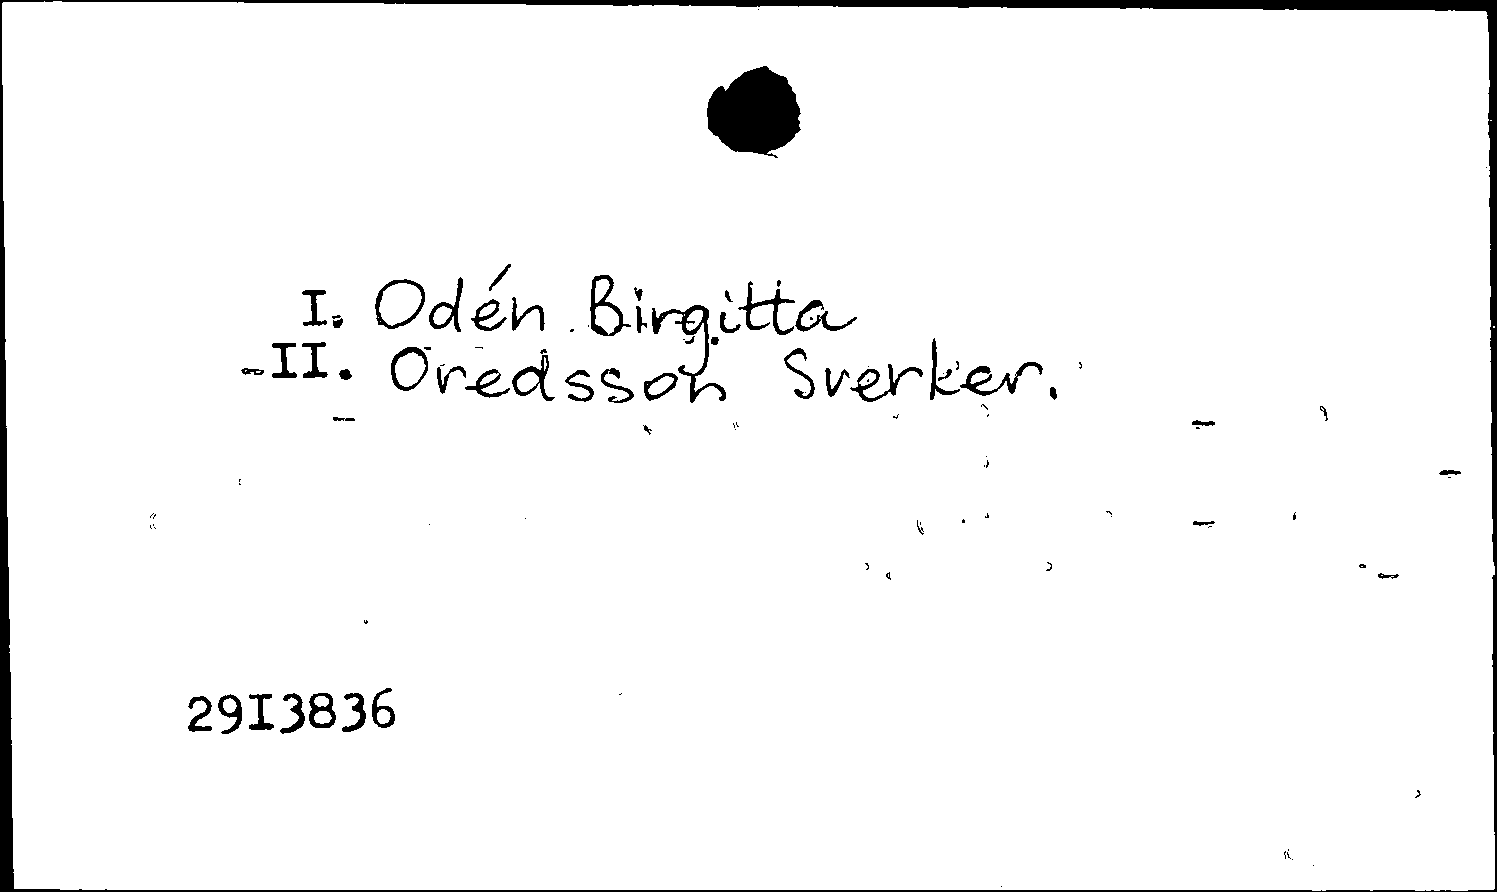 I. Odén Birgitta
II. Oredsson Sverker.
29I3836